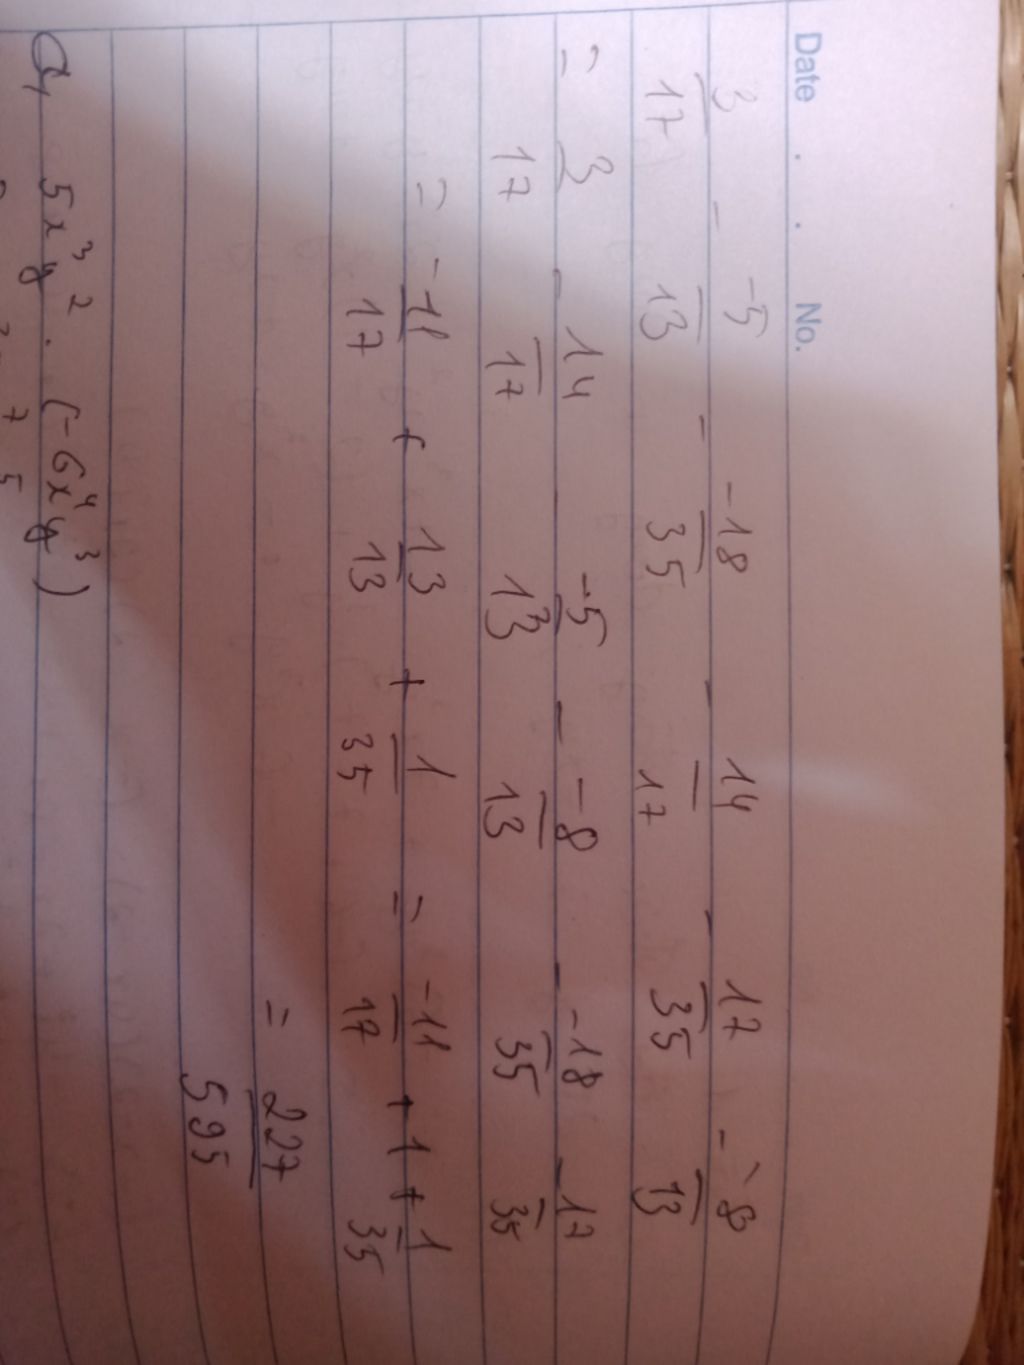 Date . . No.
3/17 - -5/13 - -18/35 - 14/17 - 17/35 - -8/13
= 3/17 - 14/17 - -5/13 - -8/13 - -18/35 - 17/35
= -11/17 + 13/13 + 1/35 = -11/17 + 1 + 1/35
= 227/595
5x³y² . (-6x⁴y³)